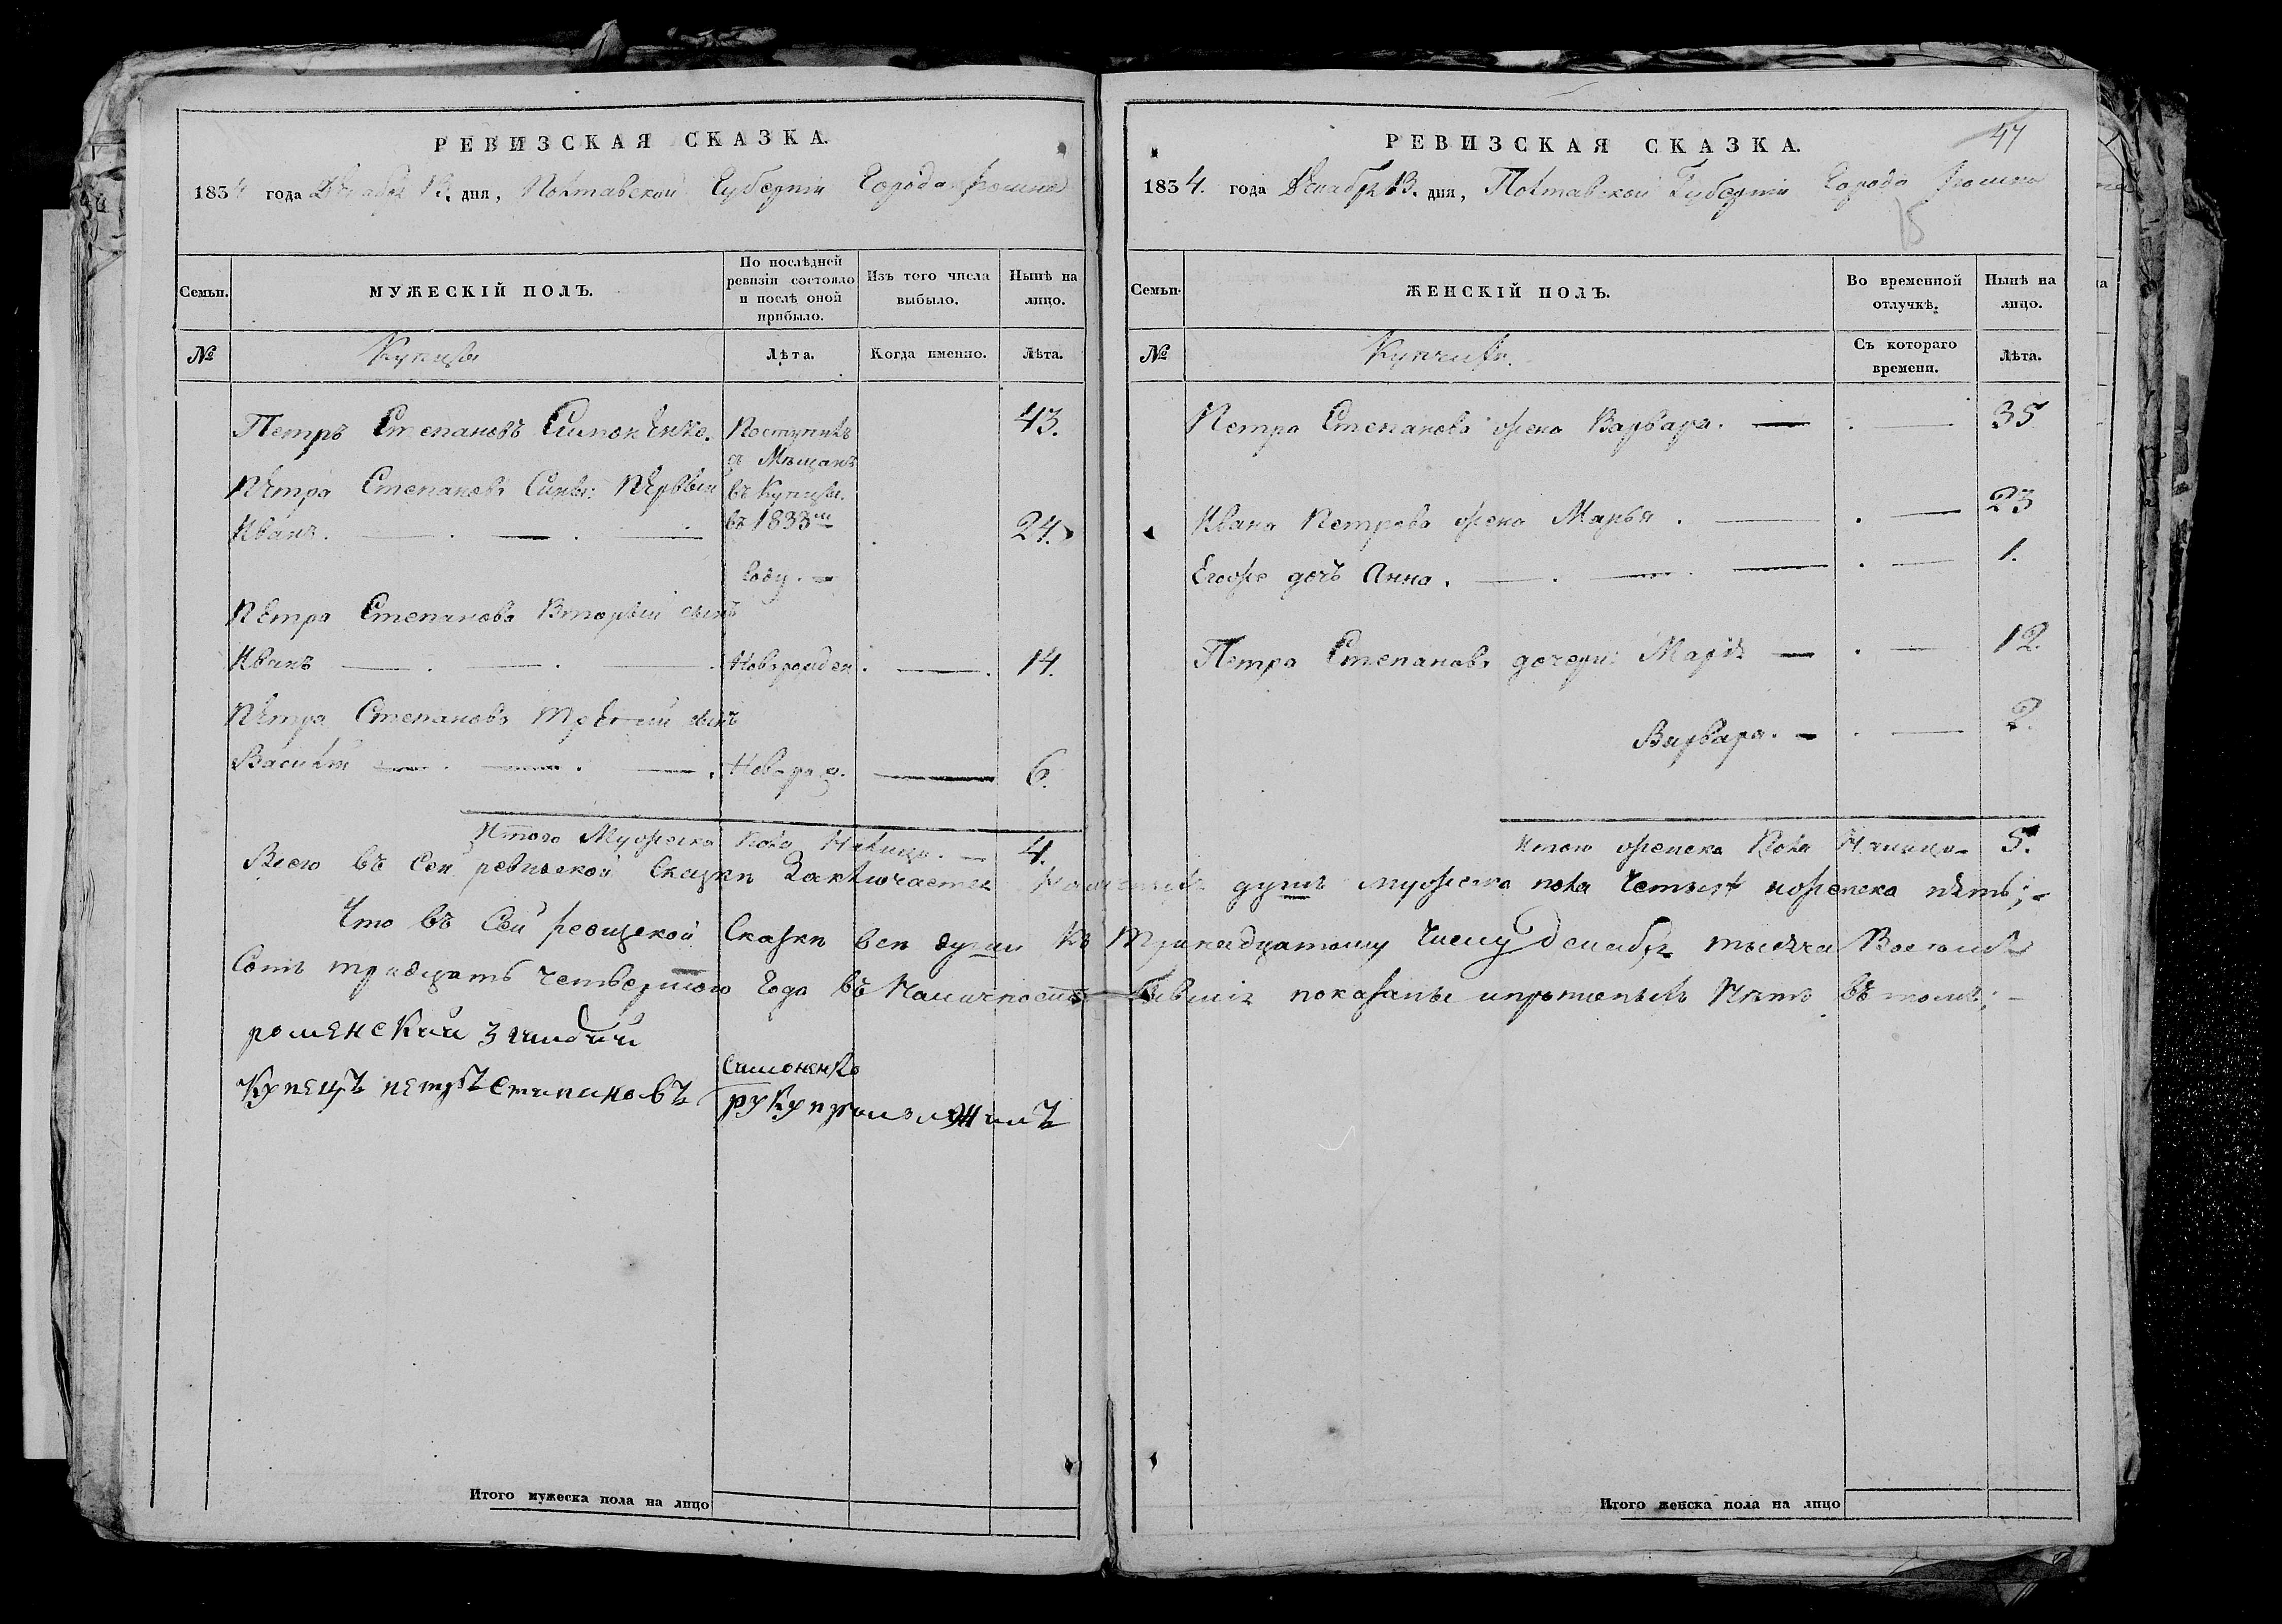 РЕВИЗСКАЯ СКАЗКА.
1834 года Декабря 13. дня, Полтавской Губерніи Города Ромна
Семьи.
МУЖЕСКІЙ ПОЛЪ.
По послѣдней ревизіи состояло и послѣ оной прибыло.
Изъ того числа выбыло.
Нынѣ на лицо.
№
Купцы
Лѣта.
Когда именно.
Лѣта.
Петръ Степановъ Симоненко. Поступилъ 43.
съ Мѣщанъ
Петра Степанова Сины: Первый въ Купцы.
Иванъ. въ 1833м 24.
Году.
Петра Степанова Вторый сынъ
Иванъ Новорожден. 14.
Петра Степанова Третій сынъ
Василій Новорож. 6.
Итого Мужеска пола Налицо. 4.
РЕВИЗСКАЯ СКАЗКА.
47
1834. года Декабря 13. дня, Полтавской Губерніи Города Ромна
15
Семьи.
ЖЕНСКІЙ ПОЛЪ.
Во временной отлучкѣ.
Нынѣ на лицо.
№
Съ котораго времени.
Лѣта.
Петра Степанова жена Варвара. 35
Ивана Петрова жена Марья. 23
Егоже дочь Анна. 1.
Петра Степанова дочери: Марія 12.
Варвара. 2.
Итого женска Пола Налицо 5.
Всего въ Сей ревизской Сказкѣ Заключается душъ мужеска пола Четыре иженска пять;
Что въ Сей ревизской Сказкѣ всѣ души Къ Тринадцатому Числу Декабря тысяча Восемь
Сотъ тридцать четвертого Года въ Наличности Бывшія показаны ипрописныхъ Нѣтъ въ томъ;
роменский 3 гилдиии
Купецъ петръ Степановъ Симоненко
руку приложилъ
Итого мужеска пола на лицо
Итого женска пола на лицо